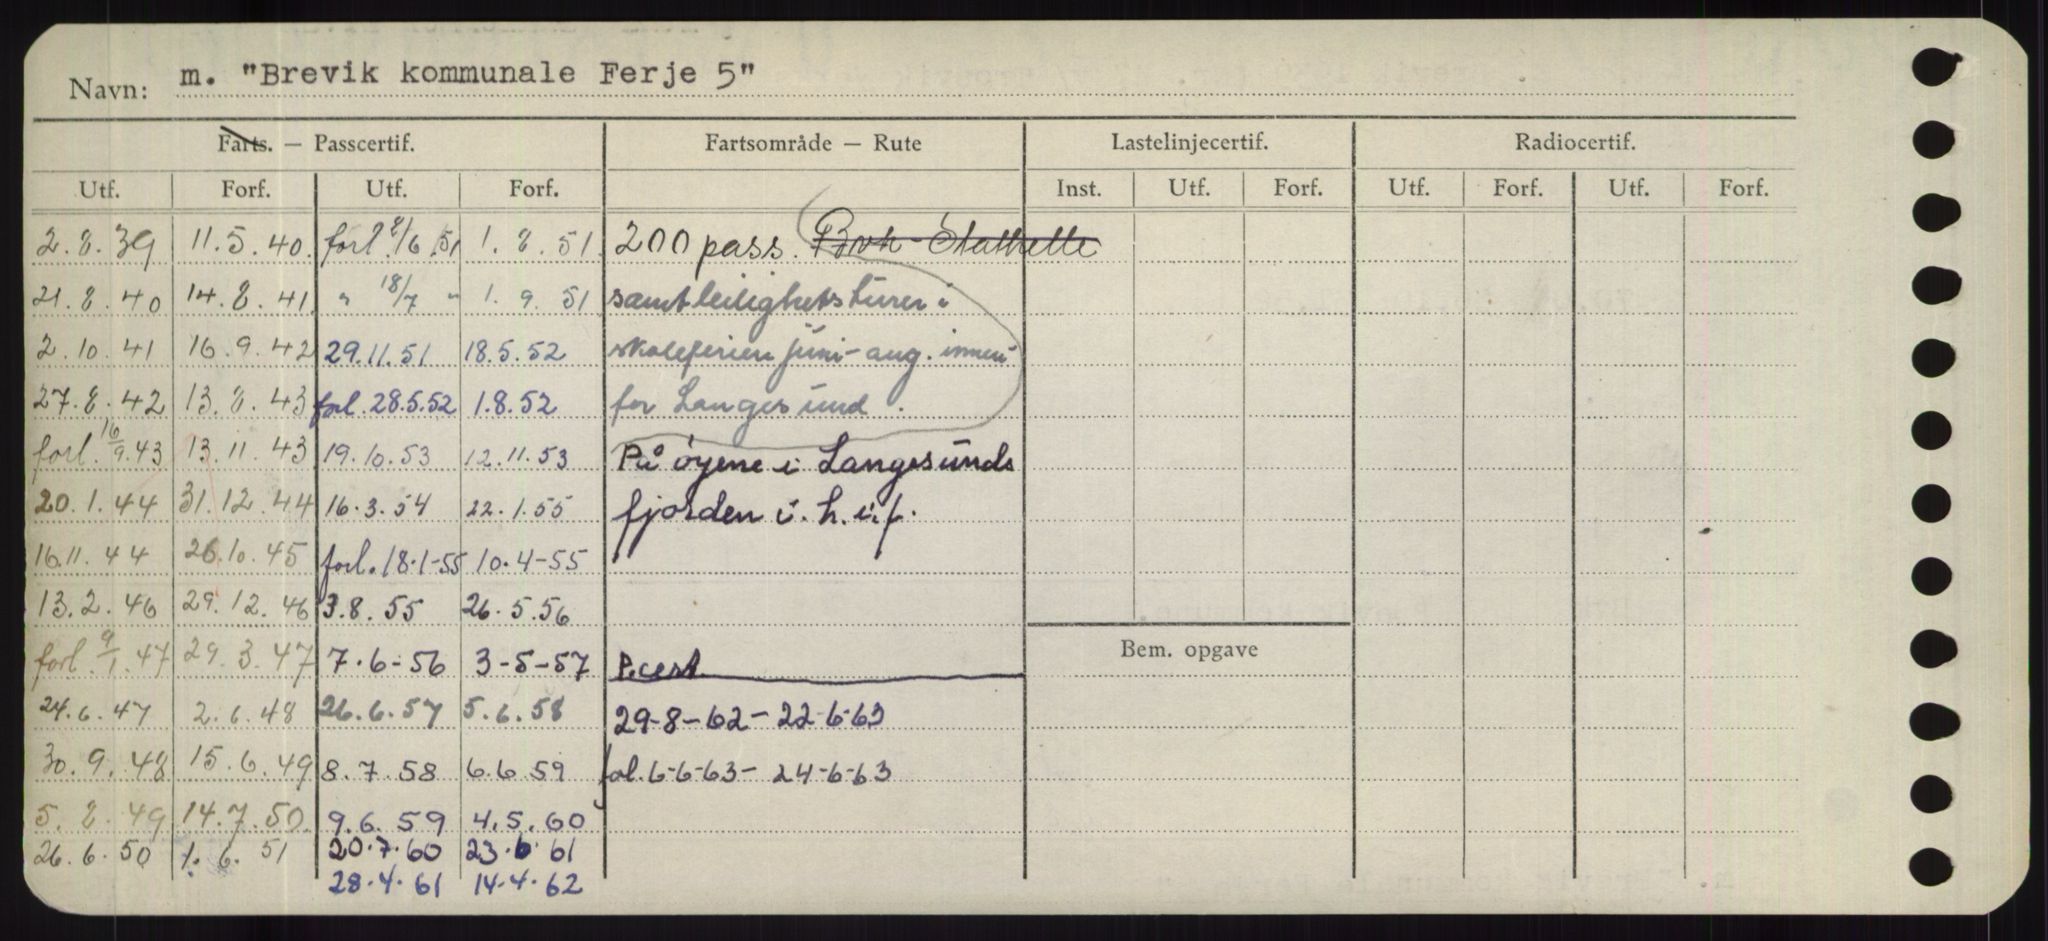 Navn: m. "Brevik kommunale Ferje 5"
Farts. — Passcertif. Fartsområde — Rute Lastelinjecertif. Radiocertif.
Utf. Forf. Utf. Forf. Inst. Utf. Forf. Utf. Forf. Utf. Forf.
2.8.39 11.5.40. forl. 8/6.51 1.8.51. 200 pass. Brvk - Stathelle
21.8.40 14.8.41 " 18/7 " 1.9.51 samt leilighetsturer i
2.10.41 16.9.42 29.11.51 18.5.52 skoleferien juni-aug. innen-
27.8.42 13.8.43 forl. 28.5.52 1.8.52 for Langesund.
forl. 16/9.43 13.11.43 19.10.53 12.11.53 På øyene i Langesunds
20.1.44 31.12.44 16.3.54 22.1.55 fjorden i. h. i. f.
16.11.44 26.10.45 forl. 18.1-55 10.4-55
13.2.46 29.12.46 3.8.55 26.5.56
forl. 9/1.47 29.3.47 7.6-56 3-5-57 P.cert.
24.6.47 2.6.48 26.6.57 5.6.58 29-8-62- 22-6-63
30.9.48 15.6.49 8.7.58 6.6.59 fol. 6-6-63- 24-6-63
5.8.49 14.7.50. 9.6.59 4.5.60
26.6.50 1.6.51 20.7.60 23.6.61
28.4.61 14.4.62
Bem. opgave